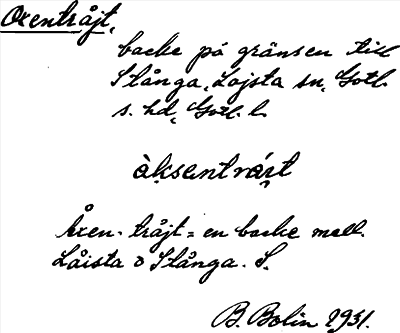 Oxentråjt,
backe på gränsen till
Stånga, Lojsta sn, Gotl.
s. hd, Gotl. l.
àksentrárt
Åxen-tråjt = en backe mell.
Låista o Stånga. S.
B. Bolin 1931.